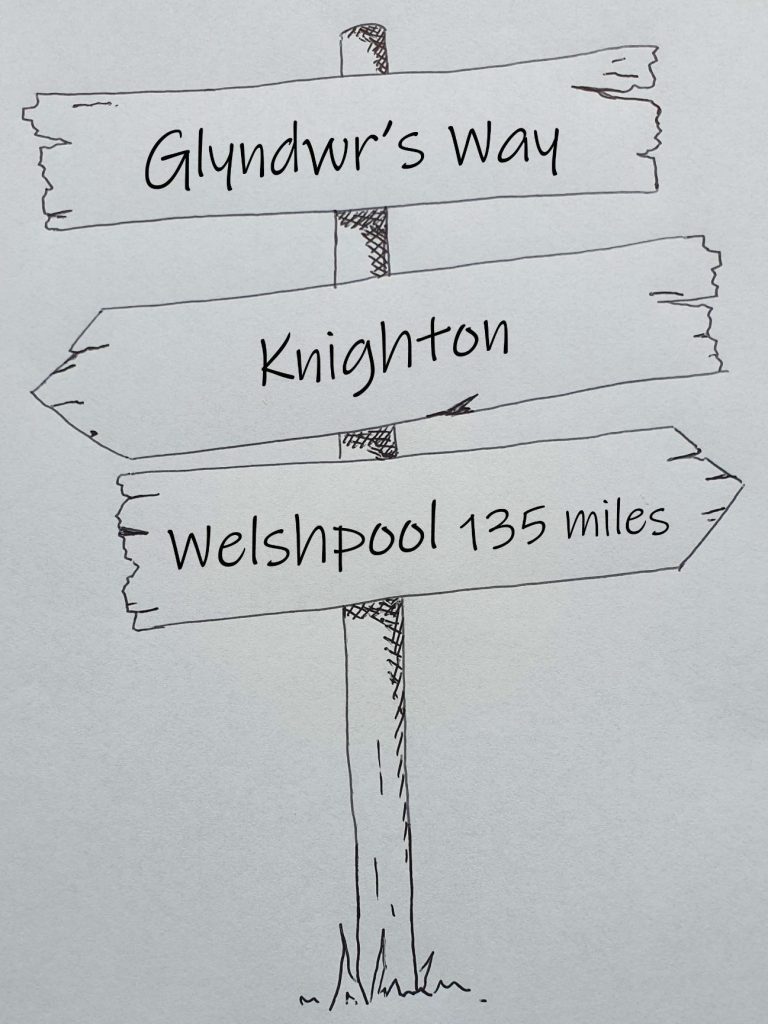 Glyndwr's Way
Knighton
Welshpool 135 miles